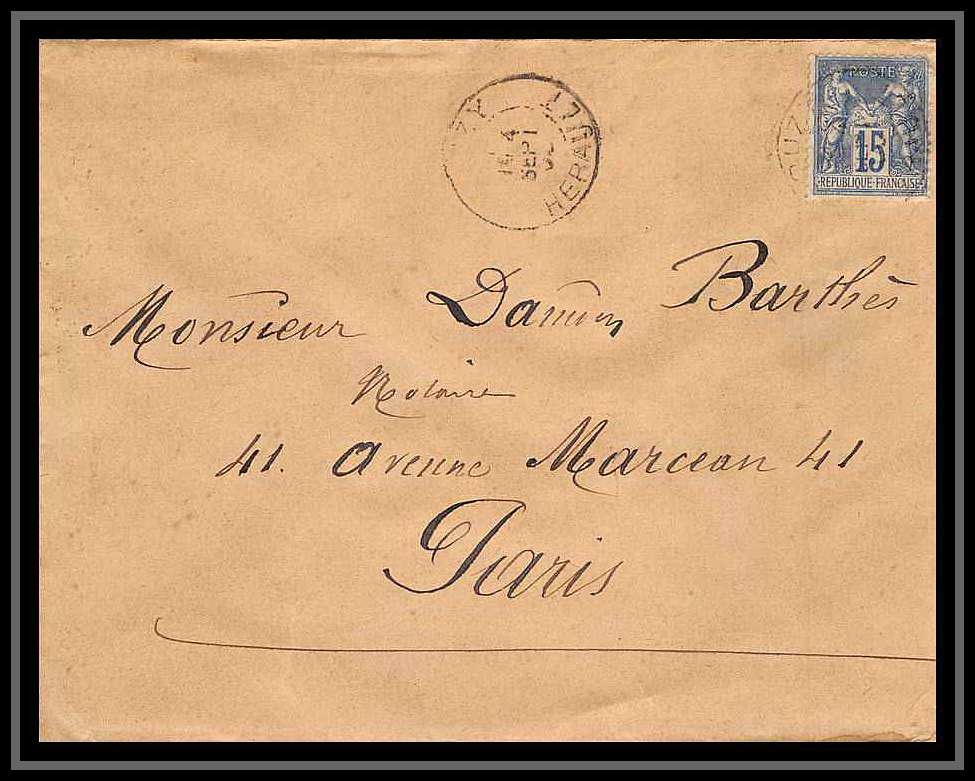 POSTE
15
REPUBLIQUE FRANÇAISE
HERAULT
SEPT
Monsieur Damien Barthès
Notaire
41. avenue Marceau 41
Paris